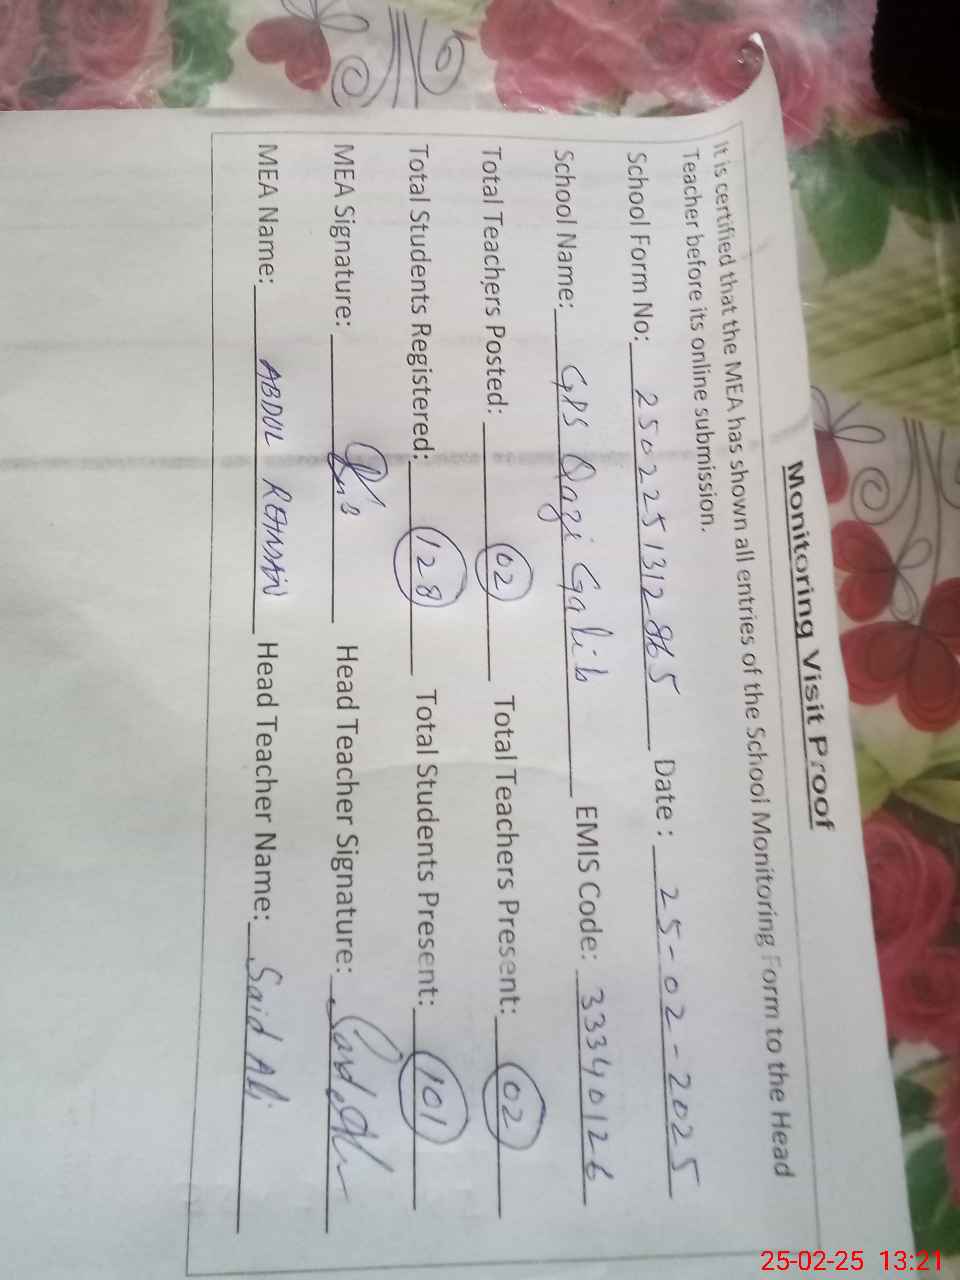 Monitoring Visit Proof
It is certified that the MEA has shown all entries of the School Monitoring Form to the Head
Teacher before its online submission.
School Form No: 2502251312865 Date : 25-02-2025
School Name: GPS Qazi Galib EMIS Code: 33340126
Total Teachers Posted: 02 Total Teachers Present: 02
Total Students Registered: 128 Total Students Present: 101
MEA Signature: Head Teacher Signature:
MEA Name: ABDUL REHMAN Head Teacher Name: Said Ali
25-02-25 13:21